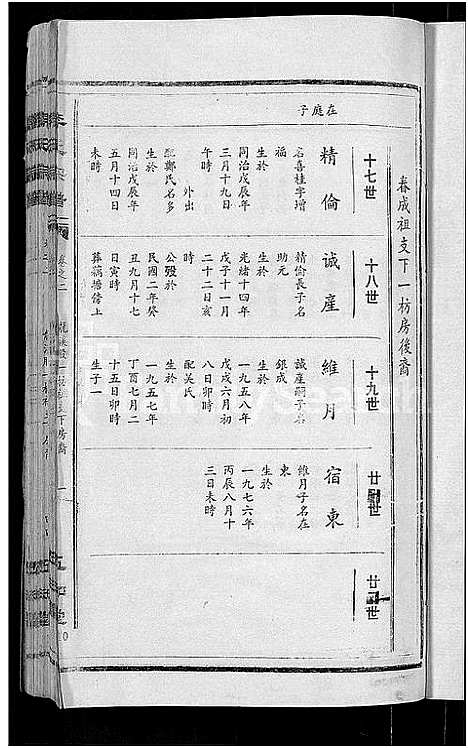 春成祖支下一枋房後裔
十七世
在庭子
精倫
名喜桂字增
福
生於
同治戊辰年
三月十九日
午時
外出
配鄭氏名多
生於
同治戊辰年
五月十四日
未時
十八世
誠産
精倫長子名
助元
生於
光緒十四年
戊子十一月
二十二日亥
時
公殁於
民國二年癸
丑九月十七
日寅時
葬藕塘傍上
十九世
維月
誠産嗣子名
銀成
生於
一九五八年
戊戌六月初
八日卯時
配吳氏
生於
一九五七年
丁酉七月二
十五日卯時
生子一
廿世
宿東
維月子名在
東
生於
一九七六年
丙辰八月十
三日未時
廿世
卷之二